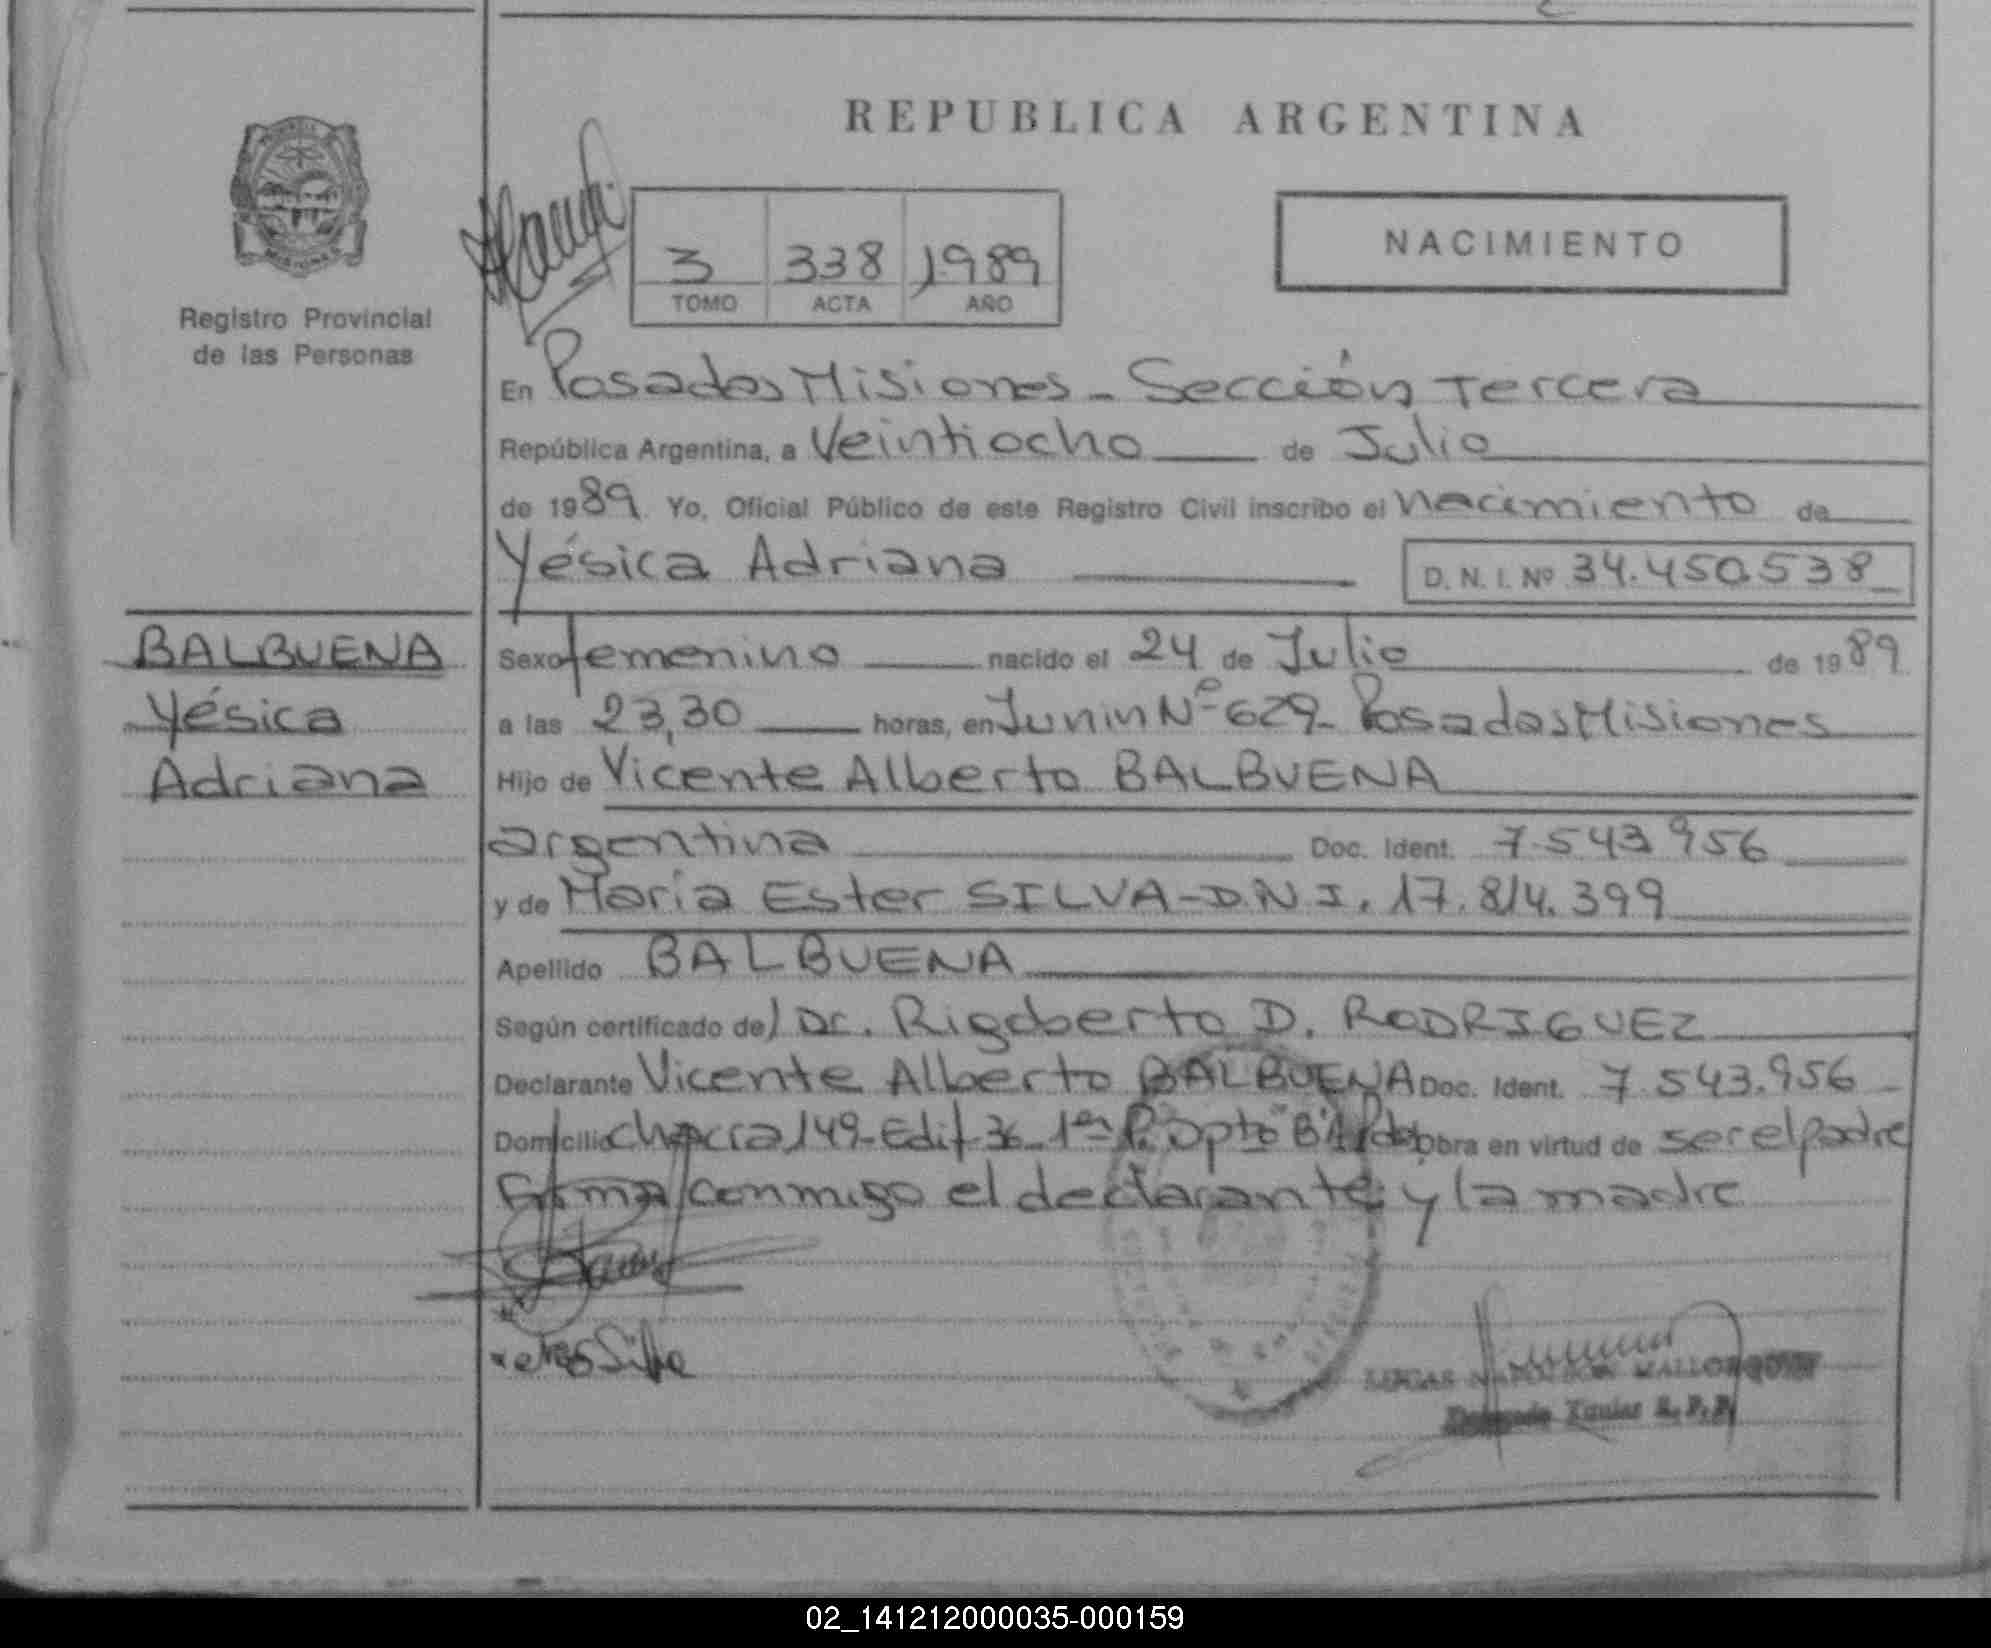 REPUBLICA ARGENTINA
Registro Provincial
de las Personas
3 338 1989
TOMO ACTA AÑO
NACIMIENTO
En Posadas Misiones - Sección Tercera
República Argentina, a Veintiocho de Julio
de 1989 Yo, Oficial Público de este Registro Civil inscribo el nacimiento de
Yésica Adriana
D. N. I. Nº 34.450.538
BALBUENA
Yésica
Adriana
Sexo femenino nacido el 24 de Julio de 1989
a las 23,30 horas, en Junin Nº 629 - Posadas Misiones
Hijo de Vicente Alberto BALBUENA
argentina Doc. Ident. 7.543.956
y de María Ester SILVA - D.N.I. 17.814.399
Apellido BALBUENA
Según certificado de Dr. Rigoberto D. RODRIGUEZ
Declarante Vicente Alberto BALBUENA Doc. Ident. 7.543.956
Domicilio chacra 149 - Edif 36 - 1er P. Dpto "B" Pdas obra en virtud de ser el padre
Firma conmigo el declarante y la madre
Silva
LUCAS NAPOLEON MALLORQUIN
Delegado Titular R. P. P.
02_141212000035-000159